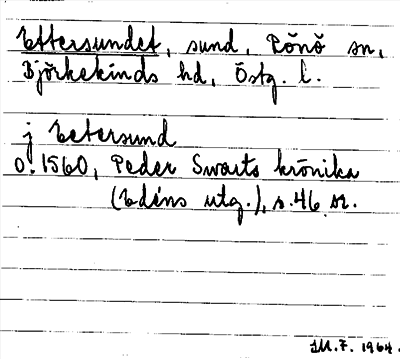 Ettersundet, sund, Rönö sn,
Björkekinds hd, Östg. l.
j Etersund
o. 1560, Peder Swarts krönika
(Edéns utg.), s. 46 sr.
M.F. 1964.